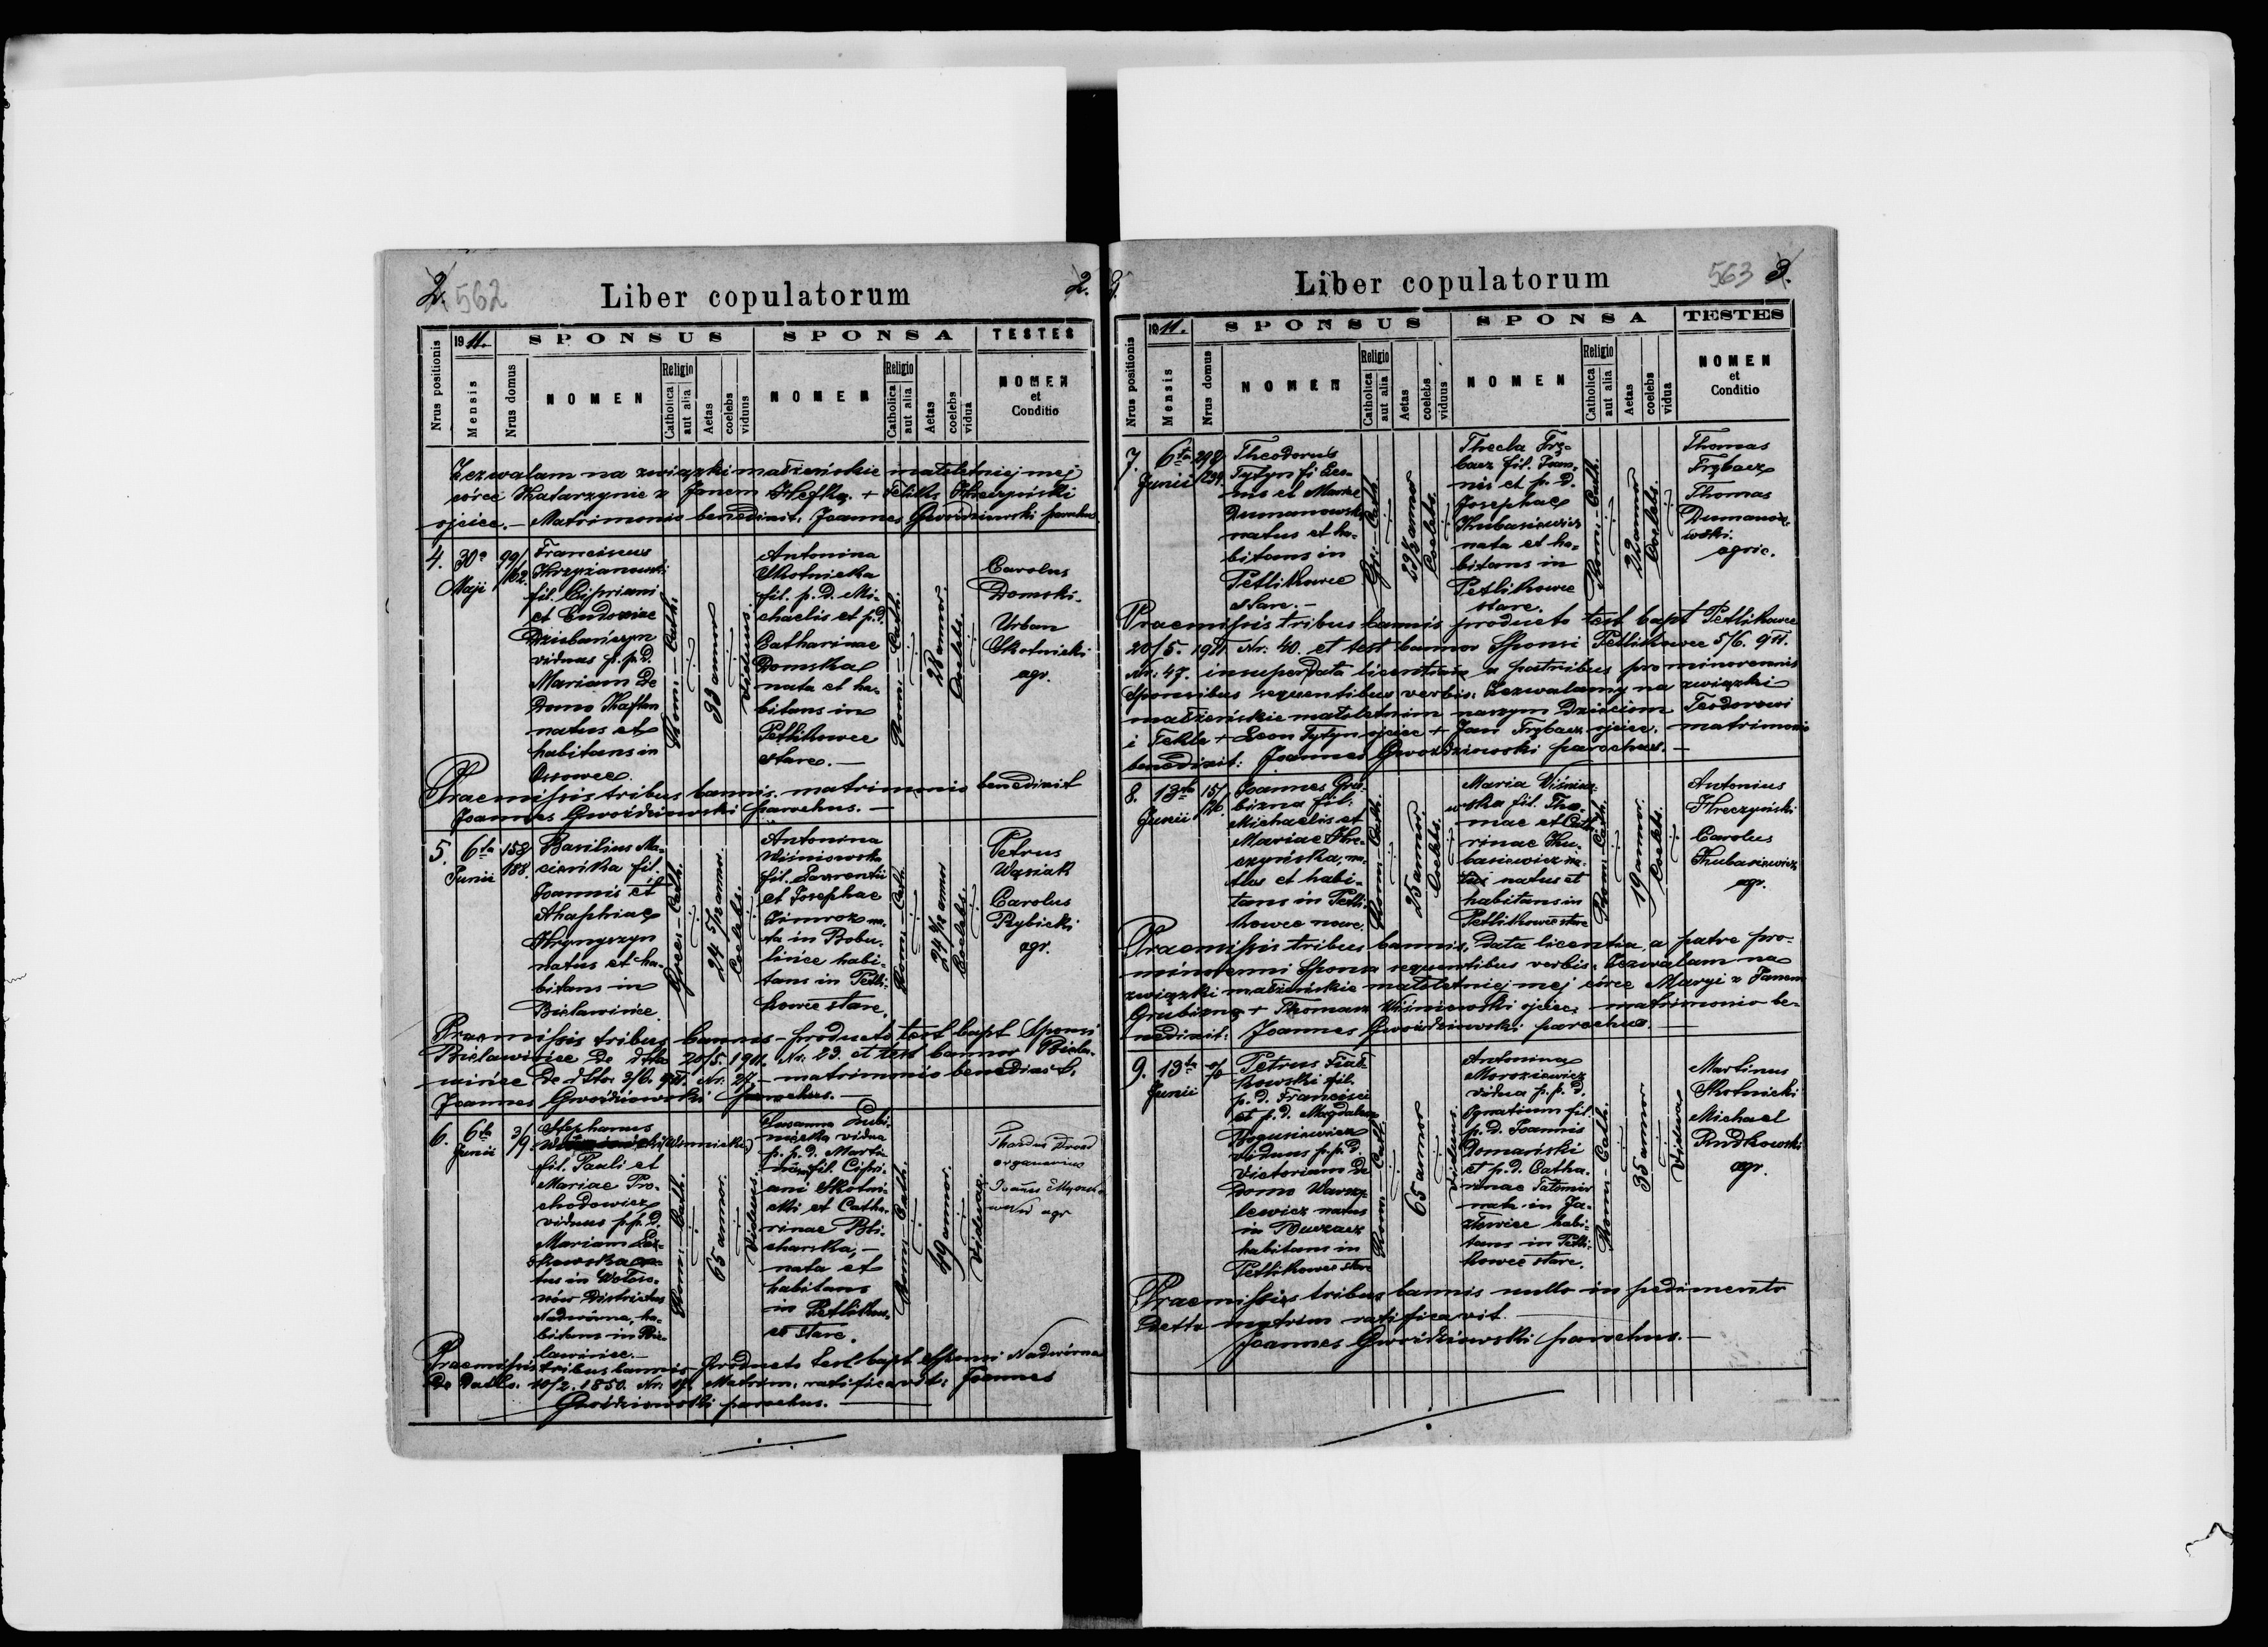 2. 562
Liber copulatorum
2.
Nrus positionis
1911.
Mensis
Nrus domus
SPONSUS
NOMEN
Religio
Catholica
aut alia
Aetas
coelebs
viduus
SPONSA
NOMEN
Religio
Catholica
aut alia
Aetas
coelebs
vidua
TESTES
NOMEN
et
Conditio
Zezwalam na związki małżeńskie małoletniej mej
córce Katarzynie z Janem + Feliks Kreczyński
ojciec. — Matrimonio benedixit: Joannes Gwoździowski parochus.
4.
30a
Maji
99/
162.
Franciscus
Krzyżanowski
fil. Cipriani
et Eudoxiae
viduus p. p. d.
Mariam de
domo Kaftan
natus et
habitans in
Ossowce.
Rom.-Cath.
33 annor
Viduus.
Antonina
Skotnicka
fil. p. d. Mi-
chaelis et p. d.
Catharinae
Domska
nata et ha-
bitans in
Petlikowce
stare. —
Rom.-Cath.
28 annor.
Coelebs.
Carolus
Domski.
Urban
Skotnicki
agr.
Praemissis tribus bannis. matrimonio benedixit
Joannes Gwoździowski parochus. —
5.
6ta
Junii
158/
188.
Basilius Ma-
cieńka fil.
Joannis et
Ahaphiae
natus et ha-
bitans in
Bielawińce.
Graec.-Cath.
24 5/12 annor.
Coelebs.
Antonina
Wiśniowska
fil. Laurentii
et Josephae
Zimroz na-
ta in Bobu-
lińce habi-
tans in Petli-
kowce stare.
Rom.-Cath.
Coelebs.
Petrus
Wąsiak
Carolus
Rybicki
agr.
Praemissis tribus bannis - producto test bapt Sponsi
Bielawińce de dtto 20/5. 1911. Nr. 23. et test bannor Biela-
wińce de dtto. 3/6. 911. Nr. 27. — matrimonio benedixit.
Joannes Gwoździowski parochus. —
6.
6ta
Junii
3/
9.
Stephanus
(Winnicki)
fil. Pauli et
Mariae Pro-
chodowicz
viduus p. p. d.
Mariam
tus in Wołoso-
nów districtus
Nadwórna, ha-
bitans in Bie-
lawińce. —
Rom.-Cath.
65 annor.
Viduus.
Susanna Lubi-
niecka vidua
p. p. d. Marti-
num fil. Cipri-
ani Skotni-
cki et Catha-
rinae Bli-
charska, —
nata et
habitans
in Petlikow-
ce stare.
Rom.-Cath.
49 annor.
Viduae.
organarius
agr
Praemissis tribus bannis - Producto test bapt Sponsi Nadwórna
de datto. 10/2. 1850. Matrim. ratificavit: Joannes
Gwoździowski parochus. —
3.
Liber copulatorum
563 3.
Nrus positionis
1911.
Mensis
Nrus domus
SPONSUS
NOMEN
Religio
Catholica
aut alia
Aetas
coelebs
viduus
SPONSA
NOMEN
Religio
Catholica
aut alia
Aetas
coelebs
vidua
TESTES
NOMEN
et
Conditio
7.
6ta
Junii
298/
234.
Theodorus
Tytyn fi Leo-
nis et Mariae
Dumanowska
natus et ha-
bitans in
Petlikowce
stare. —
Gr.-Cath.
Coelebs.
Thecla Trę-
bacz fil. Joan-
nis et p. d.
Josephae
Kubasiewicz
nata et ha-
bitans in
Petlikowce
stare.
Rom.-Cath.
22 annor
Coelebs.
Thomas
Trębacz
Thomas
Dumanow-
wski.
agric.
Praemissis tribus bannis producto test bapt Petlikowce
20/5. 1911 Nr. 40. et test bannor Sponsi Petlikowce 5/6. 911.
Nr. 47. insuper data licentia a patribus pro minorennis
Sponsibus sequentibus verbis: Zezwalamy na związki
małżeńskie małoletnim naszym dzieciom Teodorowi
i Tekle + Leon Tytyn ojciec + Jan Trębacz ojciec. matrimonio
benedixit: Joannes Gwoździowski parochus. —
8.
13ta
Junii
15/
26.
Joannes Gra-
bizna fil.
Michaelis et
Mariae Kre-
czyńska, na-
tus et habi-
tans in Petli-
kowce nowe.
Rom.-Cath.
25 annor.
Coelebs.
Maria Wiśnio-
wska fil. Tho-
mae et Catha-
rinae Ku-
basiewicz na-
natus et
habitans in
Petlikowce stare
Rom.-Cath.
19 annor.
Coelebs.
Antonius
Kreczyński
Carolus
Kubasiewicz
agr.
Praemissis tribus bannis, data licentia a patre pro
minorenni Sponsa sequentibus verbis: Zezwalam na
związki małżeńskie małoletniej mej córce Maryi z Janem
Grabizna + Thomasz Wiśniowski ojciec, matrimonio be-
nedixit: Joannes Gwoździowski parochus. —
9.
13ta
Junii
Petrus Fiał-
kowski fil.
p. d. Francisci
et p. d. Magdalena
Bogusiewicz
viduus p. p. d.
Victoriam de
domo Warzy-
lewicz natus
in Buczacz
habitans in
Petlikowce stare
Rom.-Cath.
65 annor
Viduus.
Antonina
Moroziewicz
vidua p. p. d.
Ignatium fil.
p. d. Joannis
Domański
et p. d. Catha-
rinae Tatomir
nata in Ja-
złowiec habi-
tans in Petli-
kowce stare.
Rom.-Cath.
35 annor
Viduae
Martinus
Skotnicki
Michael
Rudkowski
agr.
Praemissis tribus bannis nullo in pedimento
detto matrim ratificavit
Joannes Gwoździowski parochus. —